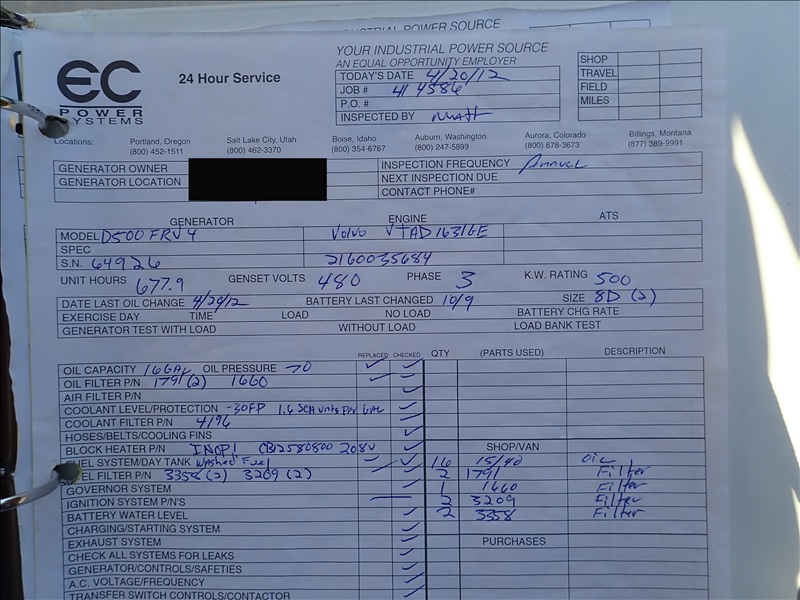 YOUR INDUSTRIAL POWER SOURCE
AN EQUAL OPPORTUNITY EMPLOYER
EC
POWER
SYSTEMS
24 Hour Service
TODAY'S DATE 4/20/12
JOB # 414586
P.O. #
INSPECTED BY Matt
SHOP
TRAVEL
FIELD
MILES
Locations:
Portland, Oregon
(800) 452-1511
Salt Lake City, Utah
(800) 462-3370
Boise, Idaho
(800) 354-6767
Auburn, Washington
(800) 247-5899
Aurora, Colorado
(800) 678-3673
Billings, Montana
(877) 389-9991
GENERATOR OWNER
GENERATOR LOCATION
INSPECTION FREQUENCY Annual
NEXT INSPECTION DUE
CONTACT PHONE#
GENERATOR ENGINE ATS
MODEL D500 FRV4 Volvo VTAD1631GE
SPEC
S.N. 64926 2160035684
UNIT HOURS 677.9 GENSET VOLTS 480 PHASE 3 K.W. RATING 500
DATE LAST OIL CHANGE 4/20/12 BATTERY LAST CHANGED 10/9 SIZE 8D (2)
EXERCISE DAY TIME LOAD NO LOAD BATTERY CHG RATE
GENERATOR TEST WITH LOAD WITHOUT LOAD LOAD BANK TEST
REPLACED CHECKED QTY (PARTS USED) DESCRIPTION
OIL CAPACITY 16GAL OIL PRESSURE 70
OIL FILTER P/N 1791 (2) 1660
AIR FILTER P/N
COOLANT LEVEL/PROTECTION -30FP 1.6 SCA units Per GAL
COOLANT FILTER P/N 4196
HOSES/BELTS/COOLING FINS
BLOCK HEATER P/N INOP! CB12580800 208V SHOP/VAN
FUEL SYSTEM/DAY TANK Washed Fuel 16 15/40 OIL
FUEL FILTER P/N 3358 (2) 3209 (2) 2 1791 Filter
GOVERNOR SYSTEM 1 1660 Filter
IGNITION SYSTEM P/N'S 2 3209 Filter
BATTERY WATER LEVEL 2 3358 Filter
CHARGING/STARTING SYSTEM
EXHAUST SYSTEM PURCHASES
CHECK ALL SYSTEMS FOR LEAKS
GENERATOR/CONTROLS/SAFETIES
A.C. VOLTAGE/FREQUENCY
TRANSFER SWITCH CONTROLS/CONTACTOR